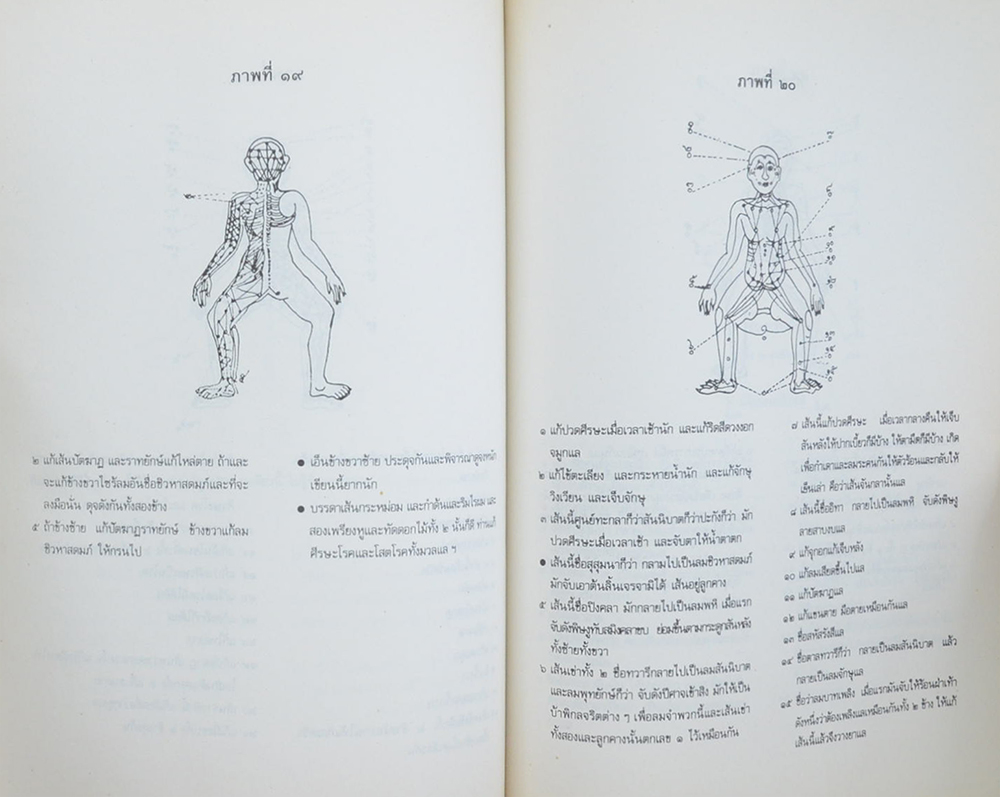 ภาพที่ ๑๙
๒ แก้เส้นปัตฆาฏ และราทยักษ์แก้ไหล่ตาย ถ้าและ
จะแก้ข้างขวาไซร้ลมอันชื่อชิวหาสดมภ์และที่จะ
ลงมือนั่น ดุจดังกันทั้งสองข้าง
๕ ถ้าข้างซ้าย แก้ปัตฆาฏราทยักษ์ ข้างขวาแก้ลม
ชิวหาสดมภ์ ให้กรนไป
● เอ็นข้างขวาซ้าย ประดุจกันและพิจารณาดูจงหนัก
เขียนนี้ยากนัก
● บรรดาเส้นกระหม่อม และกำด้นและริมไรผม และ
สองเพรียงหูและทัดดอกไม้ทั้ง ๒ นั้นก็ดี ท่านแก้
ศีรษะโรคและโสตโรคทั้งมวลแล ฯ
ภาพที่ ๒๐
๑ แก้ปวดศีรษะเมื่อเวลาเช้านัก และแก้ริดสีดวงงอก
จมูกแล
๒ แก้ไข้ตะเลียง และกระหายน้ำนัก และแก้จักษุ
วิงเวียน และเจ็บจักษุ
๓ เส้นนี้ศูนย์ทะกลาก็ว่าสันนิบาตก็ว่าปะกังก็ว่า มัก
ปวดศีรษะเมื่อเวลาเช้า และจับตาให้น้ำตาตก
● เส้นนี้ชื่อสุสุมนาก็ว่า กลามไปเป็นลมชิวหาสดมภ์
มักจับเอาต้นลิ้นเจรจามิได้ เส้นอยู่ลูกคาง
๕ เส้นนี้ชื่อปิงคลา มักกลายไปเป็นลมพหิ เมื่อแรก
จับดังพิษงูทับสมิงคลาขบ ย่อมขึ้นตามกระดูกสันหลัง
ทั้งซ้ายทั้งขวา
๖ เส้นเข่าทั้ง ๒ ชื่อทวารีกลายไปเป็นลมสันนิบาต
และลมพุทยักษ์ก็ว่า จับดังปีศาจเข้าสิง มักให้เป็น
บ้าพิกลจริตต่าง ๆ เพื่อลมจำพวกนี้และเส้นเข่า
ทั้งสองและลูกคางนั้นตกเลข ๑ ไว้เหมือนกัน
๗ เส้นนี้แก้ปวดศีรษะ เมื่อเวลากลางคืนให้เจ็บ
สันหลังให้ปากเบี้ยวก็มีบ้าง ให้ตามืดก็มีบ้าง เกิด
เพื่อกำเดาและลมระคนกันให้ตัวร้อนและกลับให้
เย็นเล่า คือว่าเส้นจันกลานั้นแล
๘ เส้นนี้ชื่ออิทา กลายไปเป็นลมพหิ จับดังพิษงู
ลายสาบงบแล
๙ แก้จุกอกแก้เจ็บหลัง
๑๐ แก้ลมเสียดขึ้นไปแล
๑๑ แก้ปัตฆาฏแล
๑๒ แก้แขนตาย มือตายเหมือนกันแล
๑๓ ชื่อสหัสรังสีแล
๑๔ ชื่อตาลทวารีก็ว่า กลายเป็นลมสันนิบาต แล้ว
กลายเป็นลมจักษุแล
๑๕ ชื่อว่าลมบาทเพลิง เมื่อแรกมันจับให้ร้อนฝ่าเท้า
ดังหนึ่งว่าต้องเพลิงแลเหมือนกันทั้ง ๒ ข้าง ให้แก้
เส้นนี้แล้วจึงวางยาแล